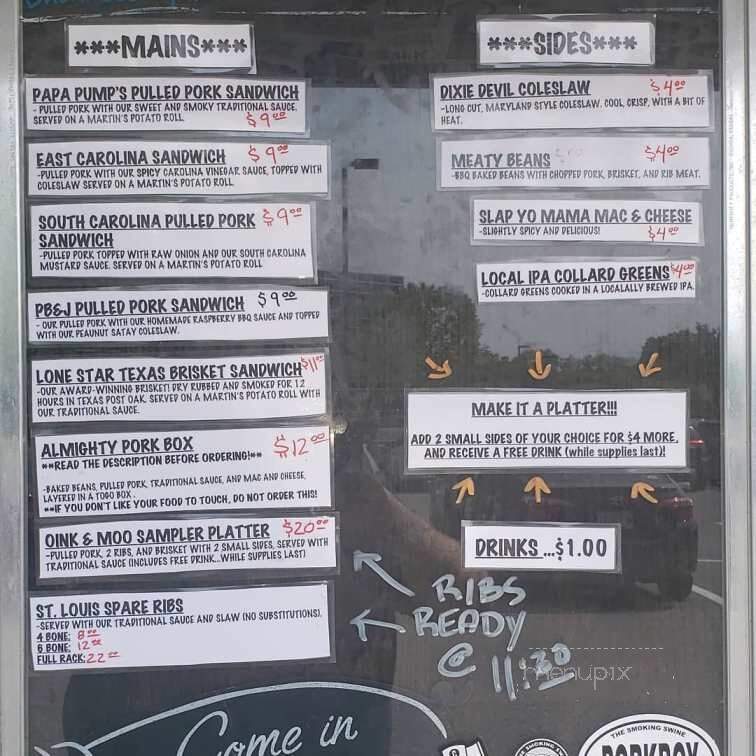 ***MAINS***
PAPA PUMP'S PULLED PORK SANDWICH
- PULLED PORK WITH OUR SWEET AND SMOKY TRADITIONAL SAUCE.
SERVED ON A MARTIN'S POTATO ROLL
$9.00
EAST CAROLINA SANDWICH $9.00
-PULLED PORK WITH OUR SPICY CAROLINA VINEGAR SAUCE, TOPPED WITH
COLESLAW SERVED ON A MARTIN'S POTATO ROLL.
SOUTH CAROLINA PULLED PORK $9.00
SANDWICH
-PULLED PORK TOPPED WITH RAW ONION AND OUR SOUTH CAROLINA
MUSTARD SAUCE. SERVED ON A MARTIN'S POTATO ROLL
PB&J PULLED PORK SANDWICH $9.00
- OUR PULLED PORK WITH OUR HOMEMADE RASPBERRY BBQ SAUCE AND TOPPED
WITH OUR PEAUNUT SATAY COLESLAW.
LONE STAR TEXAS BRISKET SANDWICH $11.00
-OUR AWARD-WINNING BRISKET! DRY RUBBED AND SMOKED FOR 12
HOURS IN TEXAS POST OAK. SERVED ON A MARTIN'S POTATO ROLL WITH
OUR TRADITIONAL SAUCE.
ALMIGHTY PORK BOX $12.00
**READ THE DESCRIPTION BEFORE ORDERING!**
-BAKED BEANS, PULLED PORK, TRADITIONAL SAUCE, AND MAC AND CHEESE,
LAYERED IN A TOGO BOX.
**IF YOU DON'T LIKE YOUR FOOD TO TOUCH, DO NOT ORDER THIS!
OINK & MOO SAMPLER PLATTER $20.00
-PULLED PORK, 2 RIBS, AND BRISKET WITH 2 SMALL SIDES, SERVED WITH
TRADITIONAL SAUCE (INCLUDES FREE DRINK...WHILE SUPPLIES LAST)
ST. LOUIS SPARE RIBS
-SERVED WITH OUR TRADITIONAL SAUCE AND SLAW (NO SUBSTITUTIONS).
4 BONE: 8.00
6 BONE: 12.00
FULL RACK: 22.00
***SIDES***
DIXIE DEVIL COLESLAW $4.00
-LONG CUT, MARYLAND STYLE COLESLAW. COOL, CRISP, WITH A BIT OF
HEAT.
MEATY BEANS $4.00
-BBQ BAKED BEANS WITH CHOPPED PORK, BRISKET, AND RIB MEAT.
SLAP YO MAMA MAC & CHEESE
-SLIGHTLY SPICY AND DELICIOUS! $4.00
LOCAL IPA COLLARD GREENS $4.00
-COLLARD GREENS COOKED IN A LOCALALLY BREWED IPA.
MAKE IT A PLATTER!!!
ADD 2 SMALL SIDES OF YOUR CHOICE FOR $4 MORE,
AND RECEIVE A FREE DRINK (while supplies last)!
DRINKS ...$1.00
RIBS
READY
@ 11:30
menupix
Come in
THE SMOKING SWINE